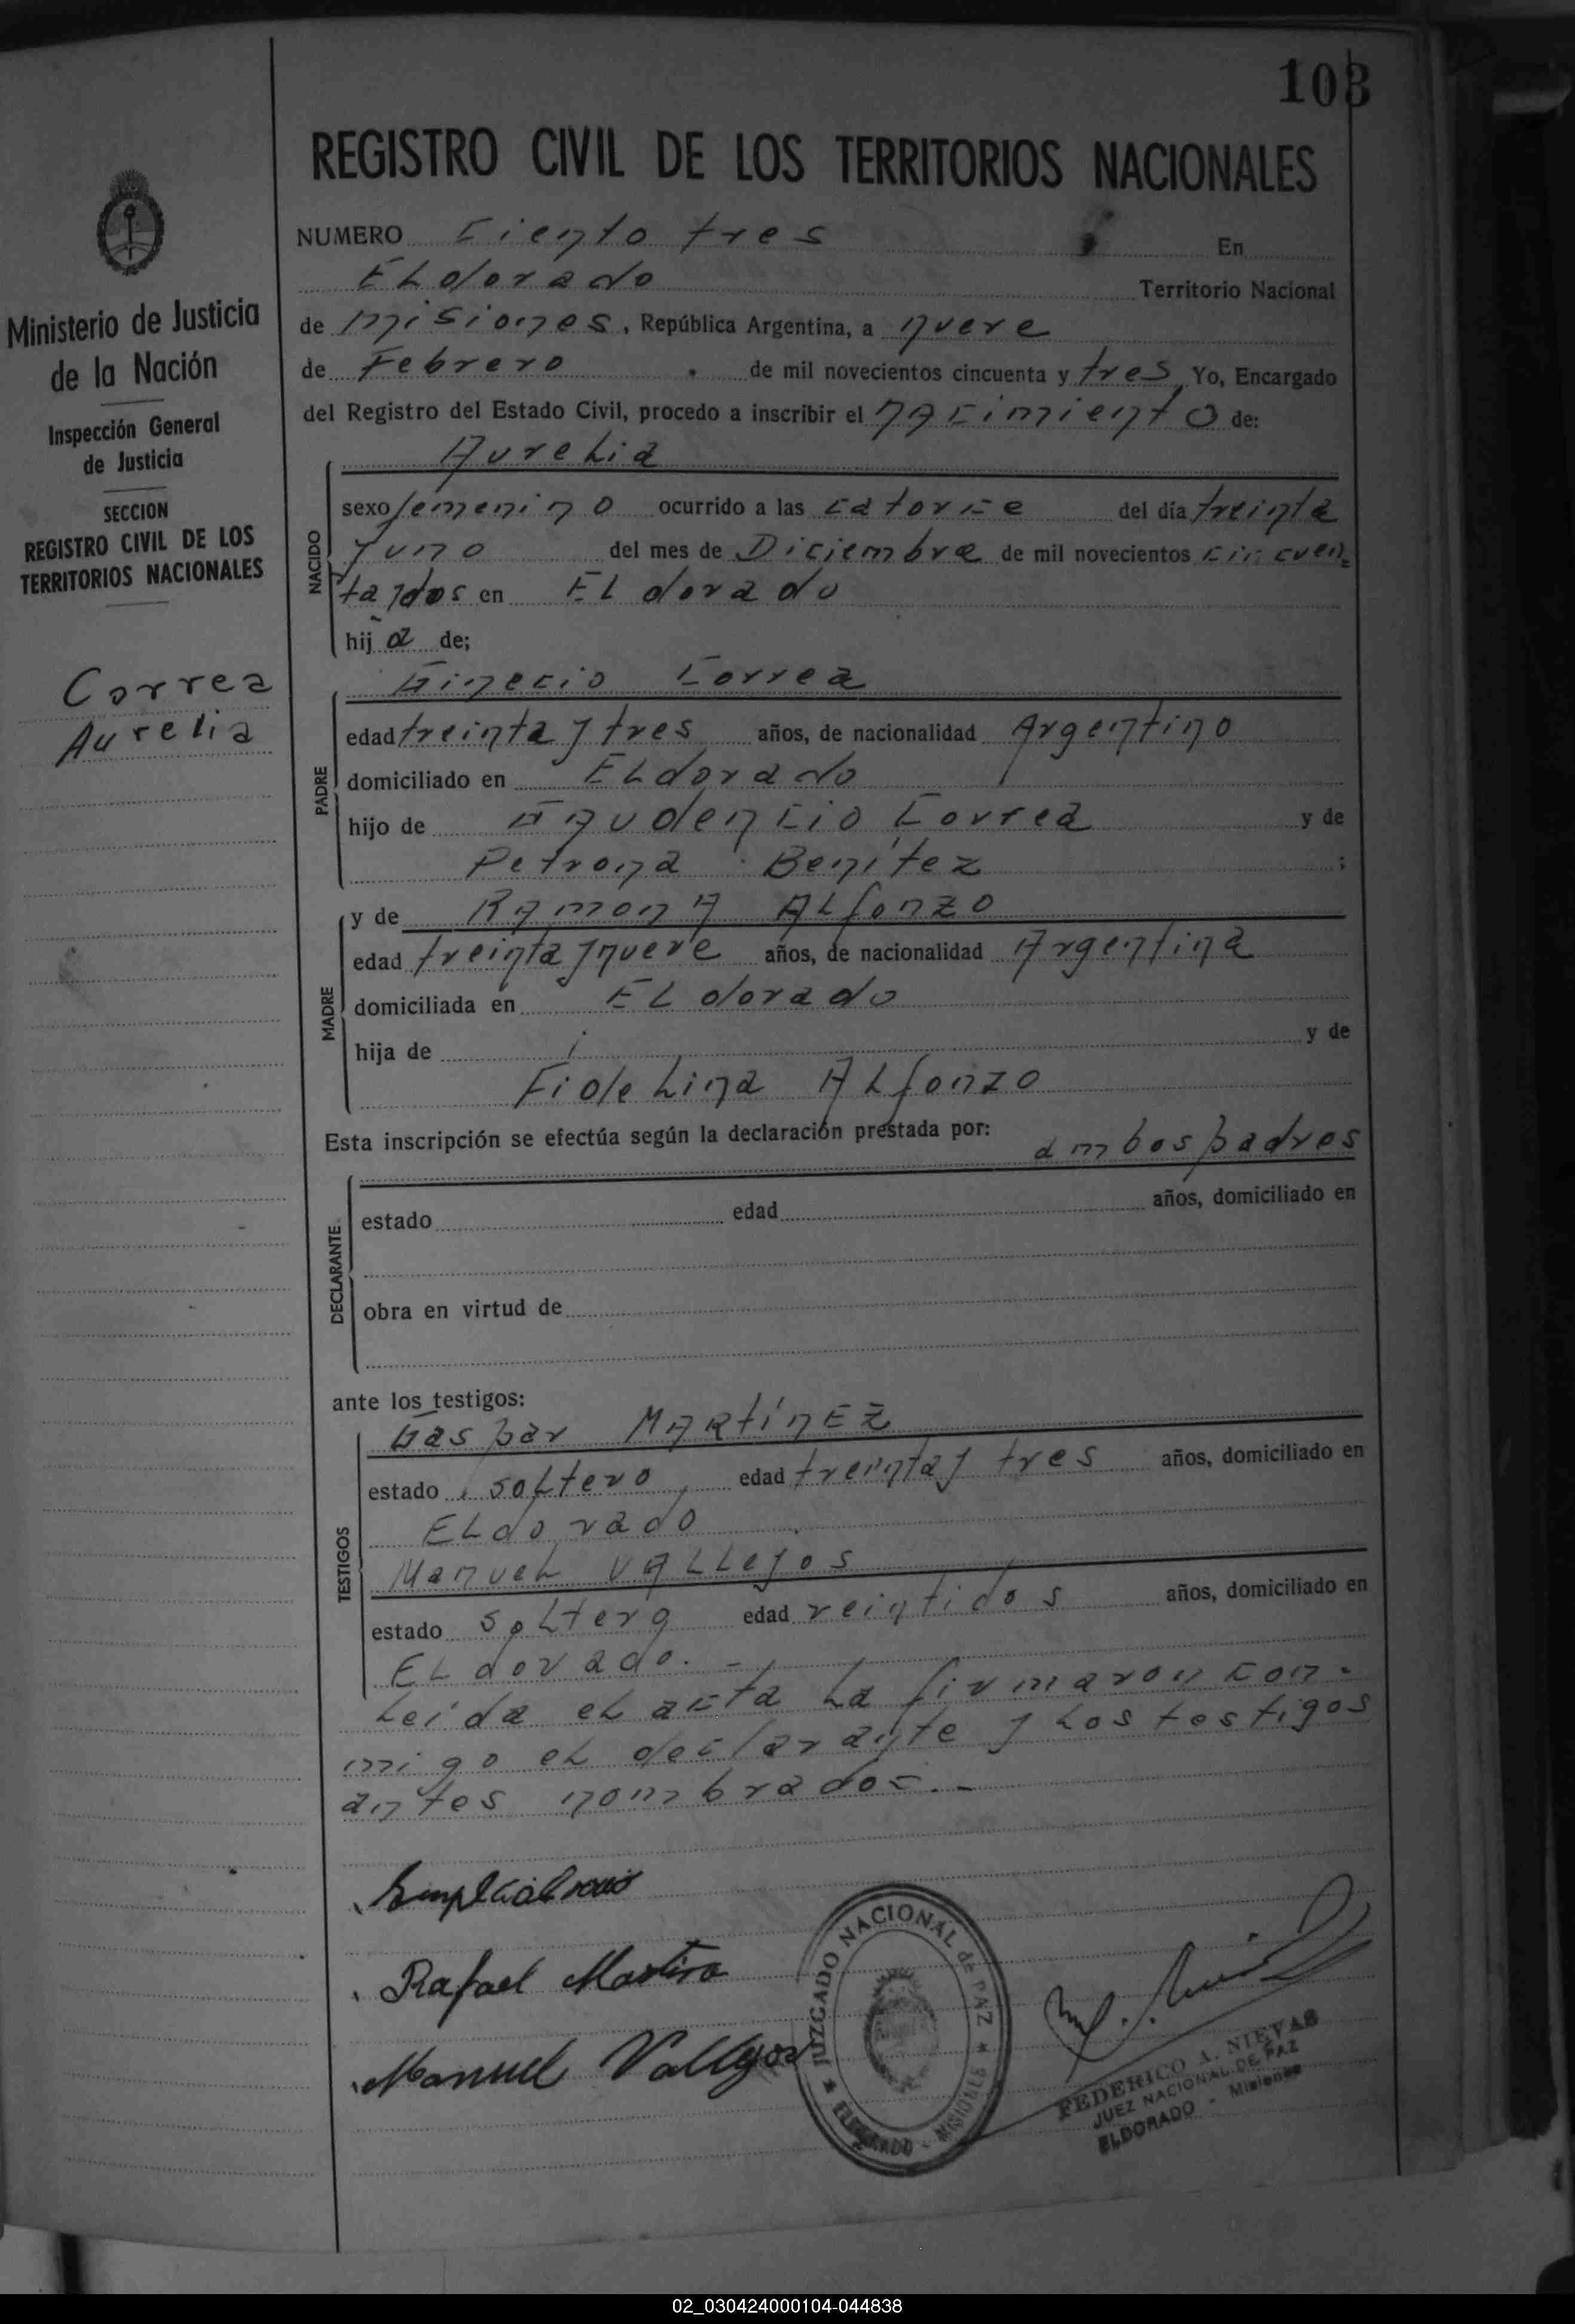 103
REGISTRO CIVIL DE LOS TERRITORIOS NACIONALES
Ministerio de Justicia
de la Nación
Inspección General
de Justicia
SECCION
REGISTRO CIVIL DE LOS
TERRITORIOS NACIONALES
Correa
Aurelia
NUMERO Ciento tres En
ELdorado Territorio Nacional
de Misiones, República Argentina, a nueve
de Febrero de mil novecientos cincuenta y tres Yo, Encargado
del Registro del Estado Civil, procedo a inscribir el nacimiento de:
NACIDO
Aurelia
sexo femenino ocurrido a las catorce del día treinta
y uno del mes de Diciembre de mil novecientos cincuen=
ta y dos en ELdorado
hija de;
PADRE
Correa
edad treinta y tres años, de nacionalidad Argentino
domiciliado en ELdorado
hijo de Gaudencio Correa y de
Petrona Benítez ;
MADRE
y de Ramona ALfonzo
edad treinta y nueve años, de nacionalidad Argentina
domiciliada en ELdorado
hija de y de
Fidelina ALfonzo
Esta inscripción se efectúa según la declaración prestada por: ambos padres
DECLARANTE
estado edad años, domiciliado en
obra en virtud de
ante los testigos:
TESTIGOS
Gaspar MARtínEZ
estado soltero edad treinta y tres años, domiciliado en
ELdorado
Manuel VALLejos
estado soltero edad veintidos años, domiciliado en
ELdorado. -
Leída el acta la firmaron con-
migo el declarante y los testigos
antes nombrados. -
Rafael
Manuel Vallejos
JUZGADO NACIONAL de PAZ
ELDORADO - MISIONES
FEDERICO A. NIEVAS
JUEZ NACIONAL DE PAZ
ELDORADO - Misiones
02_030424000104-044838